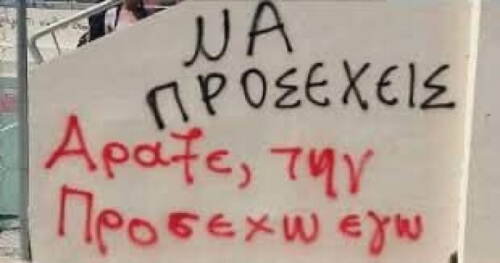 ΝΑ
ΠΡΟΣΕΧΕΙΣ
Αραξε, την
Προσεχω εγω